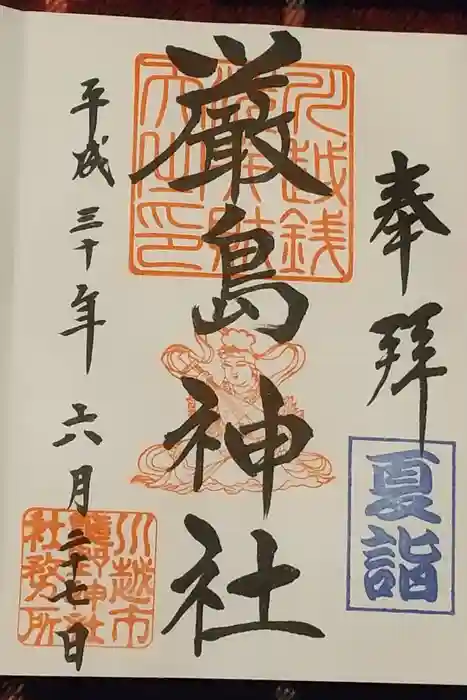 奉拝
夏詣
川越銭
厳島神社
平成三十年六月二十七日
川越市
熊野神社
社務所